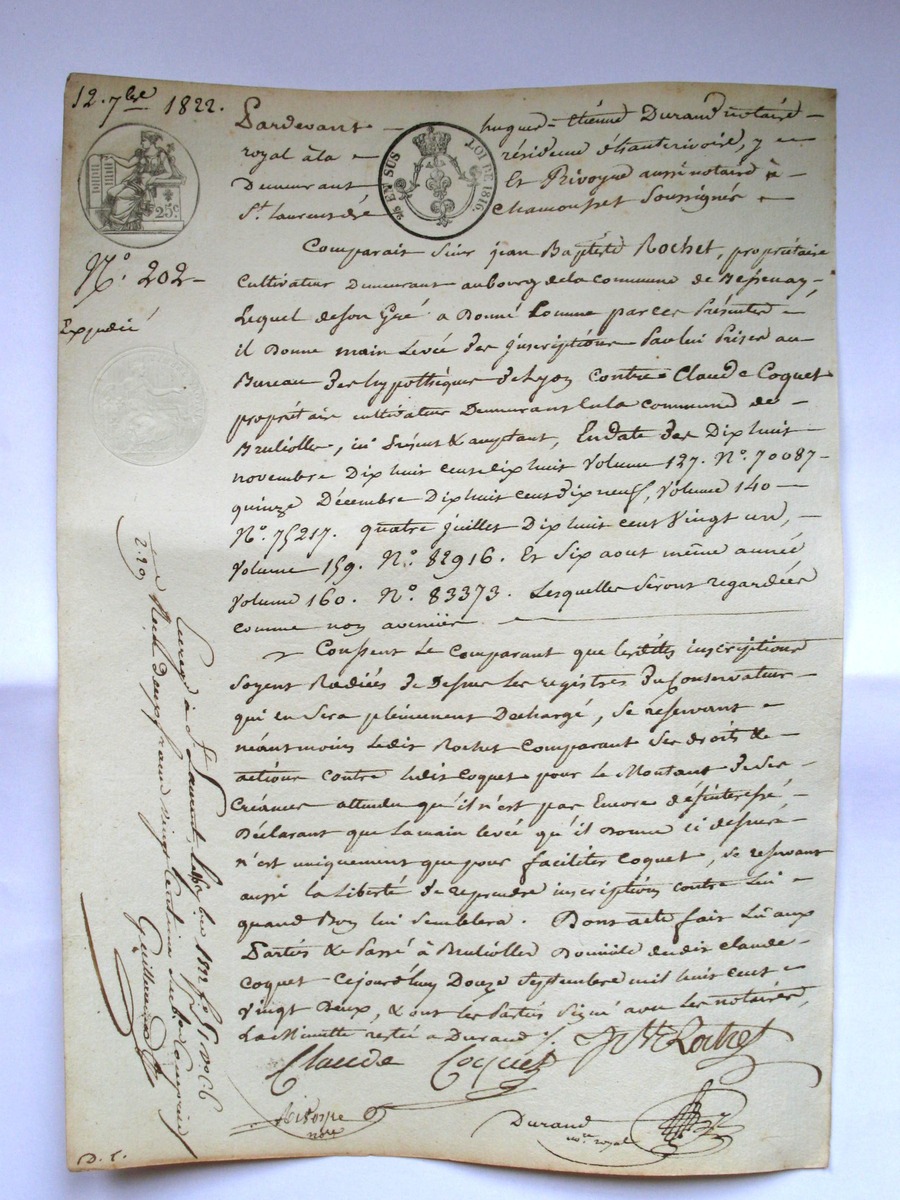 12. 7bre 1822.
25c
25 EN SUS
LOI DE 1816.
No. 202-
Expedié
Pardevant hugues Etiénne Durand notaire
royal à la résidence d'hauterivoire, y
Demeurant Et Rivoyre aussi notaire à
St. Laurens de Chamousset Soussignés
Comparait Sieur jean Baptiste Rochet, propriétaire
Cultivateur Demeurant au bourg de la commune de Bessenay,
Lequel de son Gré a Donné Comme par ces Présentes
il Donne main Levée des inscriptions Par lui Prises au
Bureau des hypothéques de Lyon Contre Claude Coquet
propriétaire cultivateur Demeurant en la commune de
Brulliolle, ici Présent & acceptant, En date des Dix huit
novembre Dix huit cent dix huit Volume 127. No. 70087
quinze Décembre Dix huit cent dix neuf, Volume 140
No. 75217. quatre juillet Dix huit cent Vingt un,
Volume 159. No. 82916. Et Six aout même année
Volume 160. No. 83373. Lesquelles Seront regardées
comme non avenües.
Consent Le Comparant que lesdites inscriptions
Soyent Radiées de Dessus Les registres du Conservateur
qui en Sera pleinement Dechargé, Se reservant
néantmoins Ledit Rochet Comparant Ses droits &
actions contre ledit Coquet pour le Montant de Ses
Créances attendu qu'il n'est pas Encore désinteressé,
Déclarant que La main levée qu'il Donne ci dessus
n'est uniquement que pour faciliter Coquet, Se reservant
aussi la Liberté de reprendre inscriptions contre Lui
quand Bon lui Semblera. Dont acte fait Lu aux
Parties & Passé à Brulliolle Domicile dudit Claude
Coquet Cejourd'huy Douze Septembre mil huit cent
Vingt Deux, & ont les Parties Signé avec les notaires,
La Minutte restée a Durand
Claude Coquet
Rochet
Rivoyre
nore
Durand
nore royal
Enregé à St. Laurent
2.20
Reçu deux francs vingt centimes
D. E.